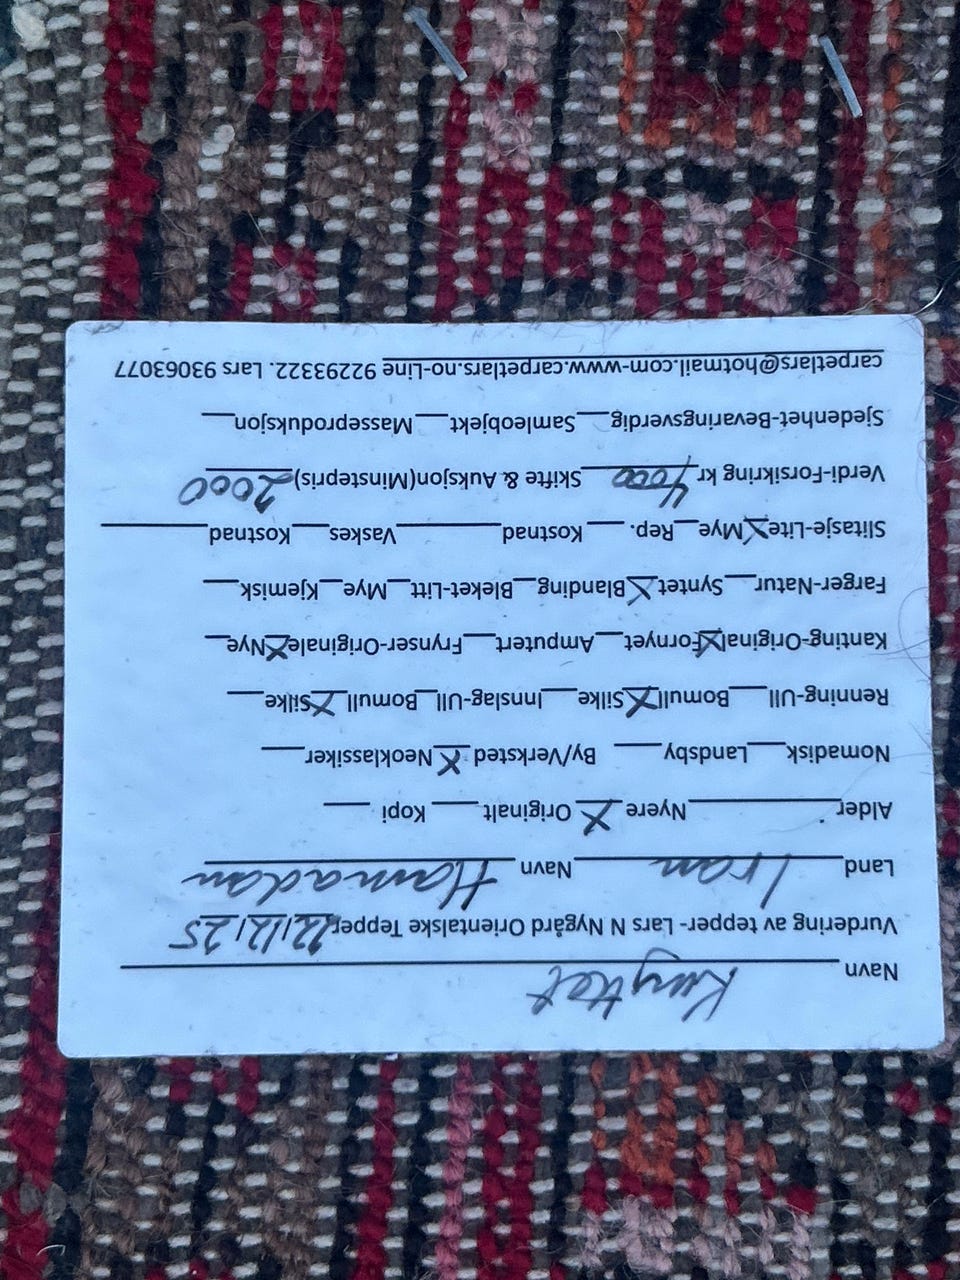 Navn Knyttet
Vurdering av tepper- Lars N Nygård Orientalske Tepper 22/12/25
Land Iran Navn Hamadan
Alder ________ Nyere X Originalt ____ Kopi ____
Nomadisk____Landsby____ By/Verksted X Neoklassiker____
Renning-Ull____Bomull X Silke____Innslag-Ull__Bomull X Silke____
Kanting-Original X Fornyet___Amputert___Frynser-Originale X Nye___
Farger-Natur___Syntet X Blanding__Bleket-Litt__Mye__Kjemisk____
Slitasje-Lite X Mye__Rep.____Kostnad________Vaskes____Kostnad________
Verdi-Forsikring kr 4000 Skifte & Auksjon(Minstepris) 2000
Sjedenhet-Bevaringsverdig___Samleobjekt___Masseproduksjon___
carpetlars@hotmail.com-www.carpetlars.no-Line 92293322. Lars 93063077